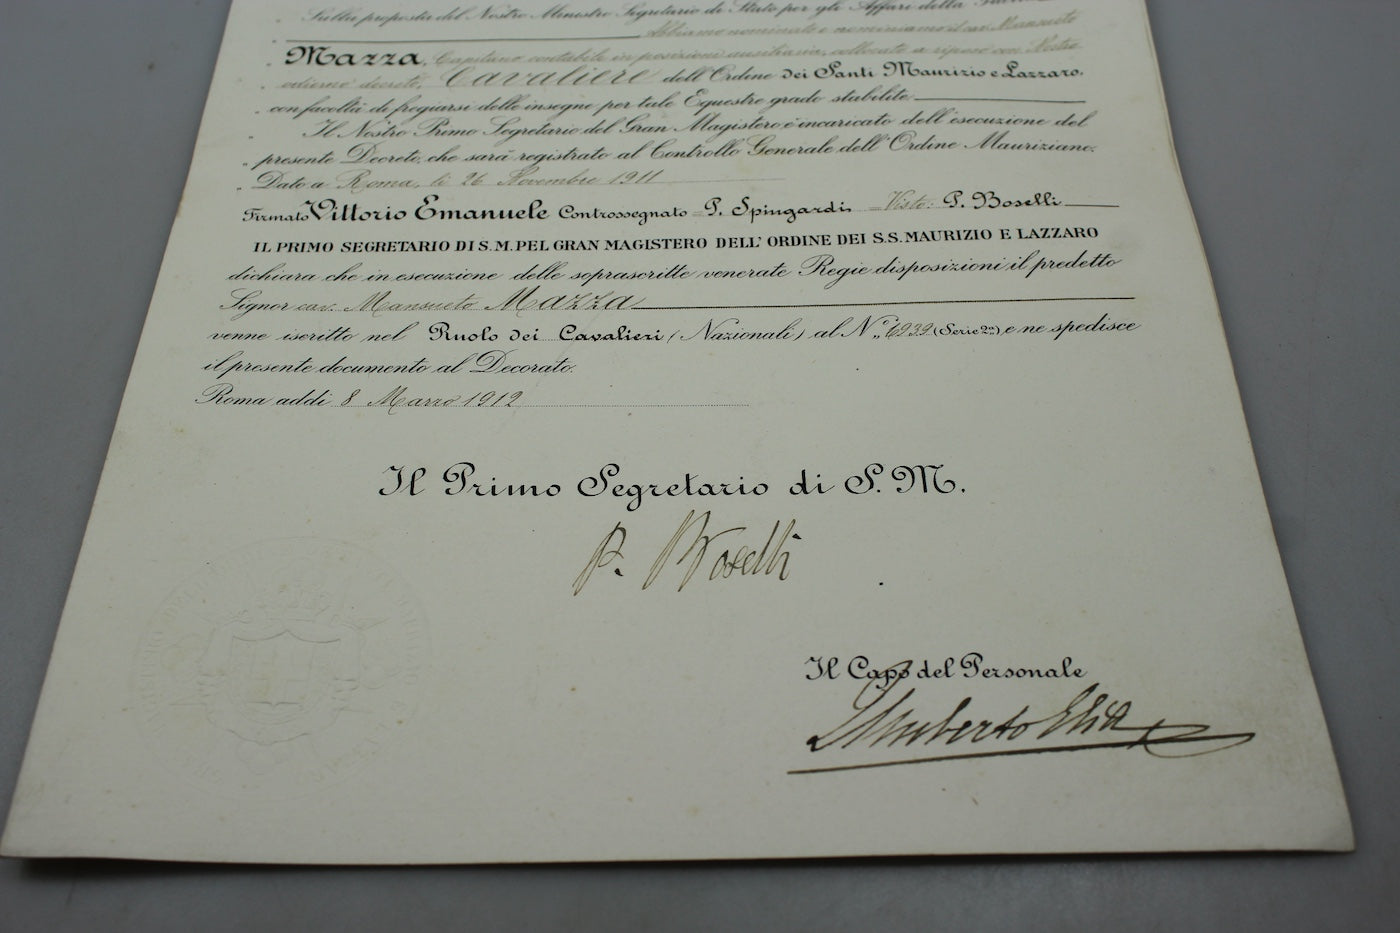 Sulla proposta del Nostro Ministro Segretario di Stato per gli Affari della
Abbiamo nominato e nominiamo il cav. Mansueto
Mazza, Capitano contabile in posizione ausiliaria, collocato a riposo con Nostro
odierno decreto, Cavaliere dell'Ordine dei Santi Maurizio e Lazzaro,
con facoltà di fregiarsi delle insegne per tale Equestre grado stabilite
Il Nostro Primo Segretario del Gran Magistero è incaricato dell'esecuzione del
presente Decreto, che sarà registrato al Controllo Generale dell'Ordine Mauriziano.
Dato a Roma, li 26 Novembre 1911
Firmato Vittorio Emanuele Controssegnato = P. Spingardi, = Visto: P. Boselli
IL PRIMO SEGRETARIO DI S.M. PEL GRAN MAGISTERO DELL'ORDINE DEI S.S. MAURIZIO E LAZZARO
dichiara che in esecuzione delle soprascritte venerate Regie disposizioni il predetto
Signor cav. Mansueto Mazza
venne iscritto nel Ruolo dei Cavalieri (Nazionali) al N.° 6939 (Serie 2a) e ne spedisce
il presente documento al Decorato.
Roma addi 8 Marzo 1912
Il Primo Segretario di S. M.
P. Boselli
Il Capo del Personale
Umberto Elia